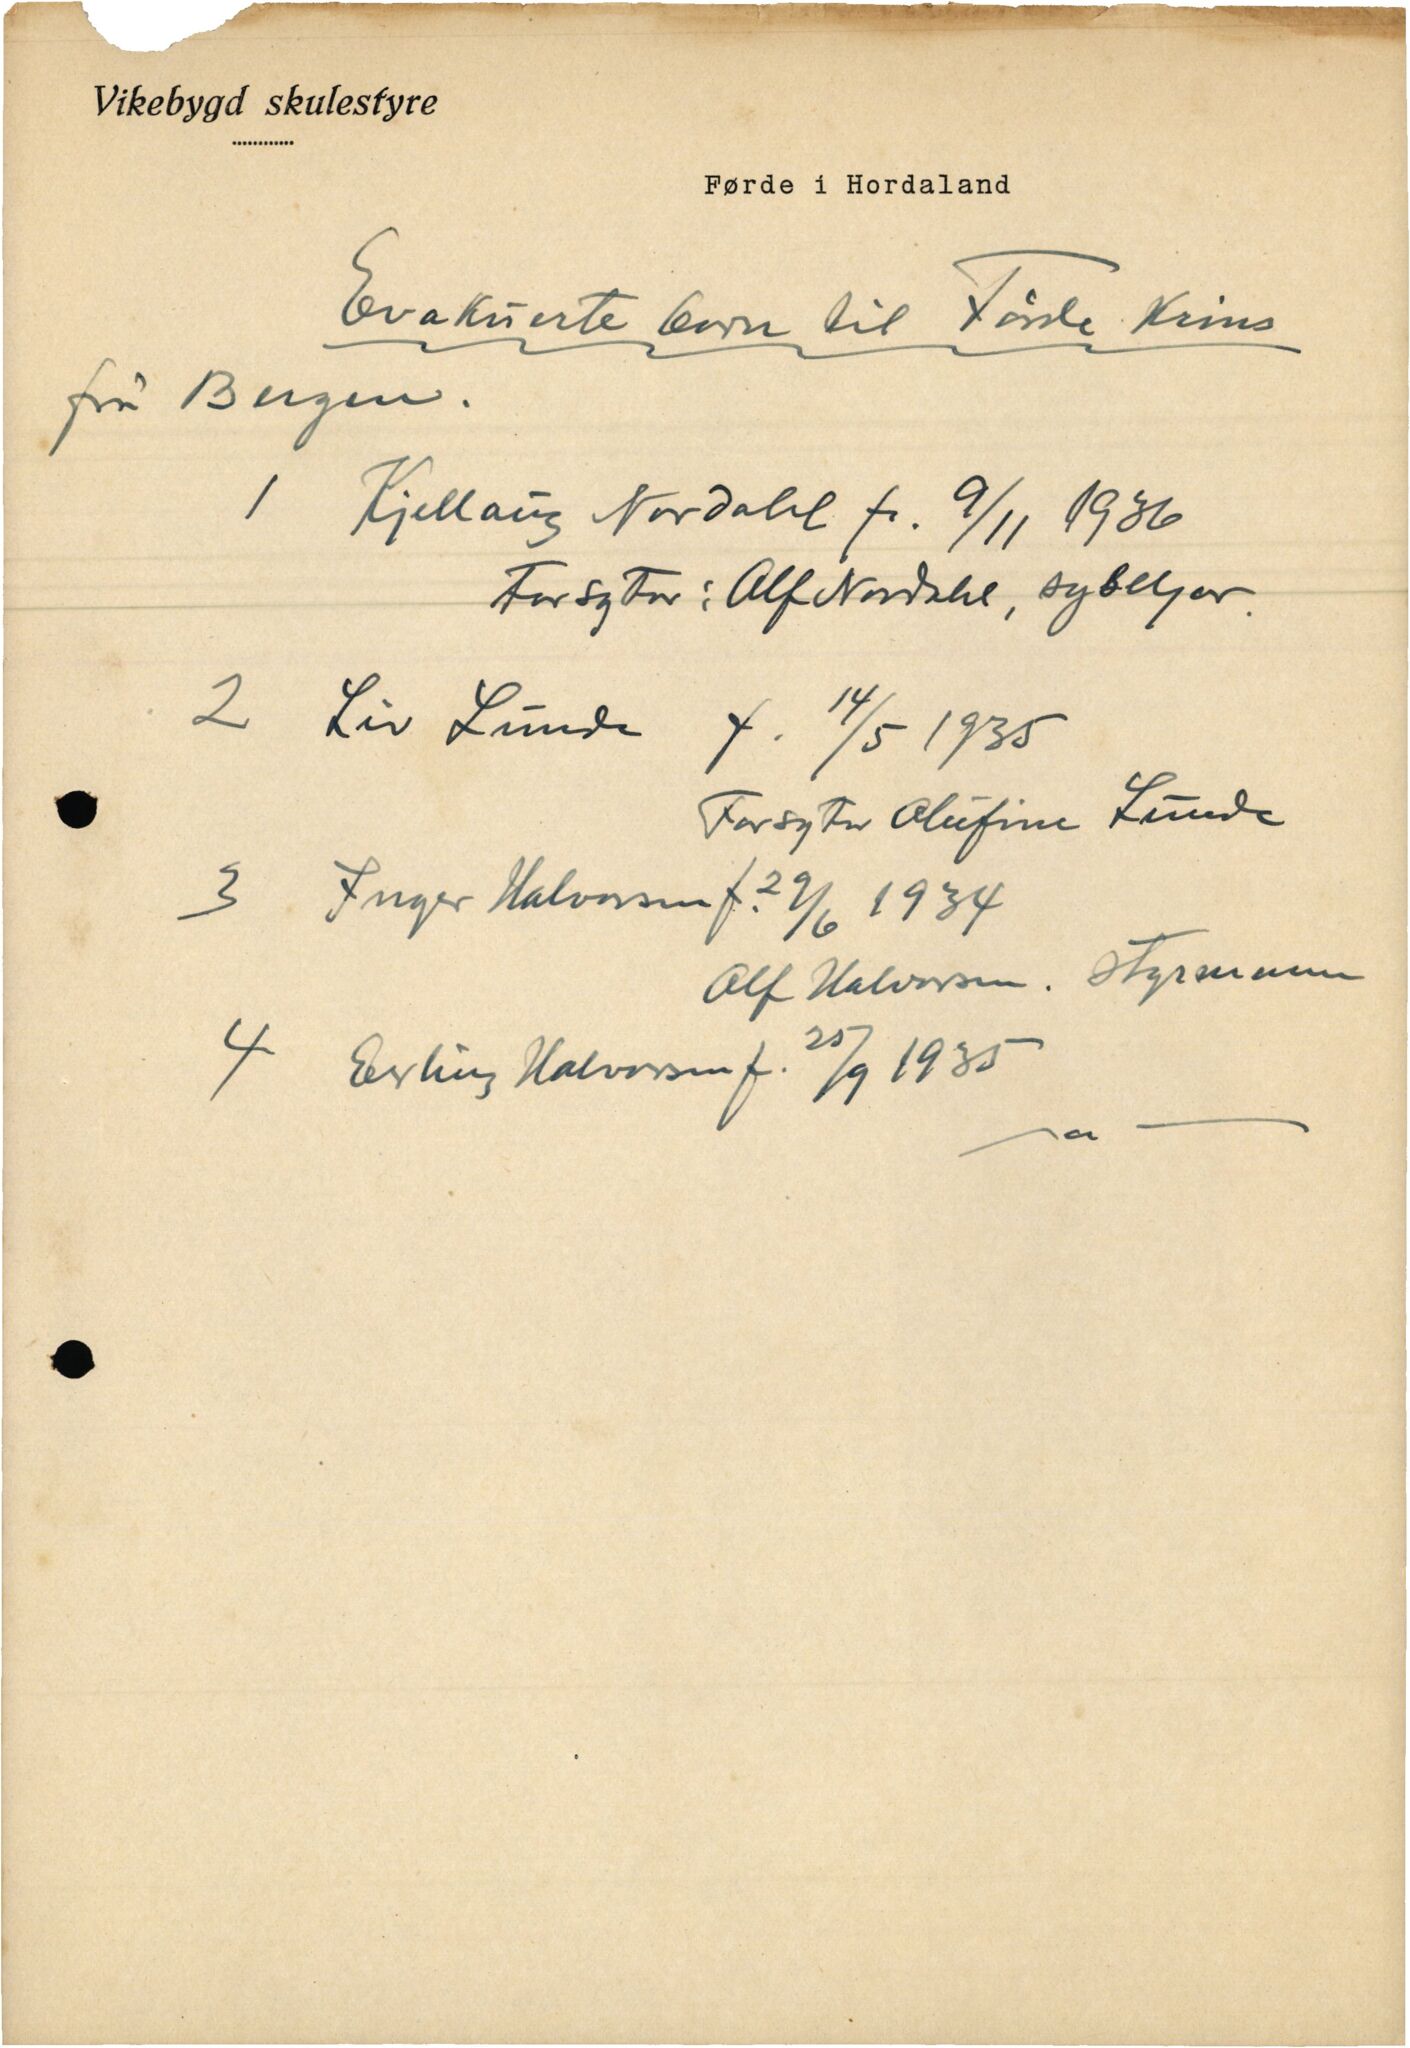 Vikebygd skulestyre
Førde i Hordaland
Evakuerte born til Førde krins
frå Bergen.
1 Kjellaug Nordahl f. 9/11 1936
Forsytar: Alf Nordahl,
2 Liv Lunde f. 14/5 1935
Forsytar Olufine Lunde
3 Inger Halvorsen f. 29/6 1934
Alf Halvorsen. styrmann
4 Erling Halvorsen f. 25/9 1935
— " —